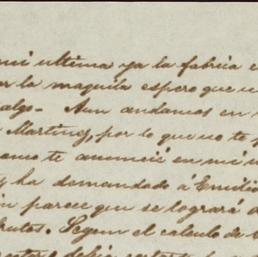 mi ultima ya la fabrica e
or la maquila espero que u
algo. Aun andamos en
Martinez, por lo que no te p
omo te anuncié en mi u
y ha demandado á Emilio
in parece que se logrará d
frutos. Segun el calculo de